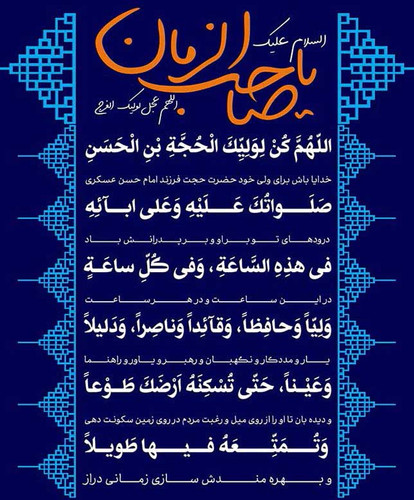 السلام علیک
یا صاحب الزمان
اللهم عجل لولیک الفرج
اَللّهُمَّ كُنْ لِوَلِيِّكَ الْحُجَّةِ بْنِ الْحَسَنِ
خدایا باش برای ولی خود حضرت حجت فرزند امام حسن عسکری
صَلَواتُكَ عَلَيْهِ وَعَلى ابآئِهِ
درودهای تو بر او و بر پدرانش باد
فى هذِهِ السَّاعَةِ، وَفى كُلِّ ساعَةٍ
در این ساعت و در هر ساعت
وَلِيّاً وَحافِظاً، وَقآئِداً وَناصِراً، وَدَليلاً
یار و مددکار و نگهبان و رهبر و یاور و راهنما
وَعَيْناً، حَتّى تُسْكِنَهُ اَرْضَكَ طَوْعاً
و دیده بان تا او را از روی میل و رغبت مردم در روی زمین سکونت دهی
وَتُمَتِّعَهُ فيها طَويلاً
و بهره مندش سازی زمانی دراز